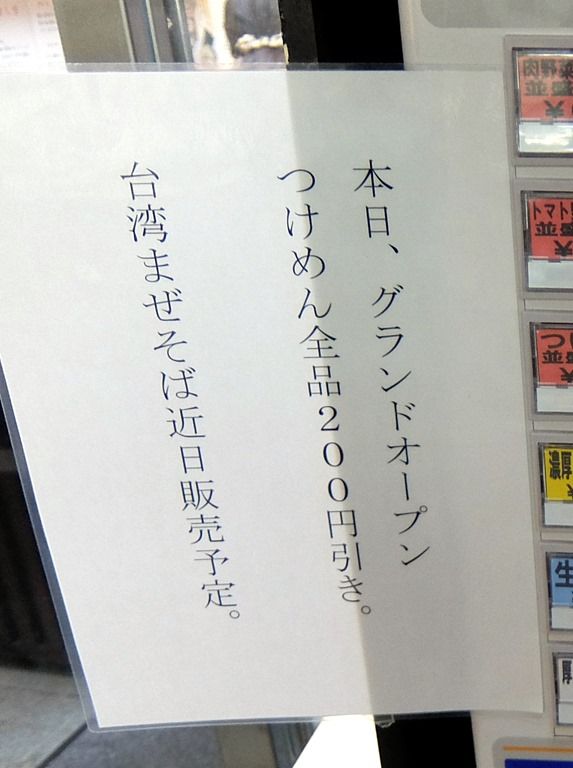 本日、グランドオープン
つけめん全品２００円引き。
台湾まぜそば近日販売予定。
肉野菜
並盛
トマト
並盛
つけ
並盛
生